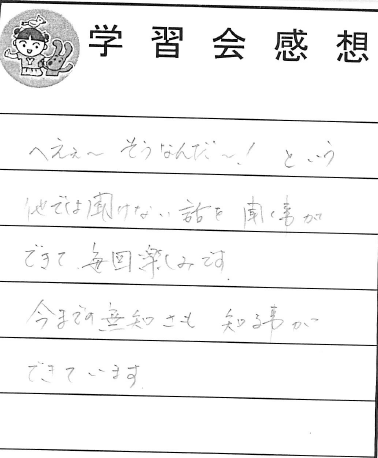 学習会感想
へえぇ～そうなんだ～！という
他では聞けない話を聞く事が
できて、毎回楽しみです。
今までの無知さも知る事が
できています。